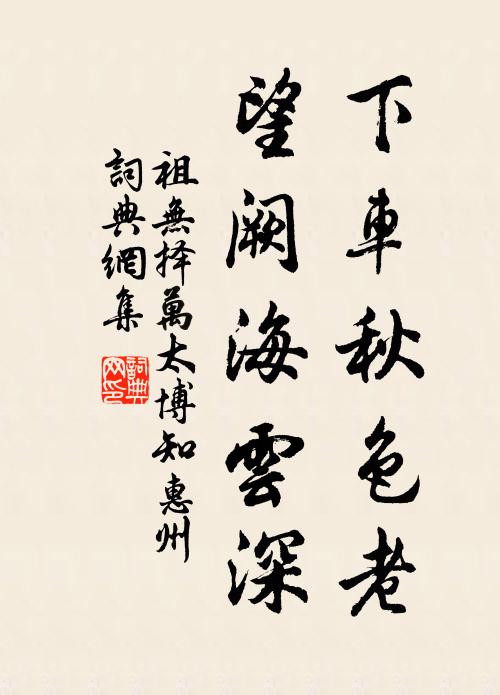 下車秋色老
望闕海雲深
祖無择萬太博知惠州
詞典網集
詞典网印